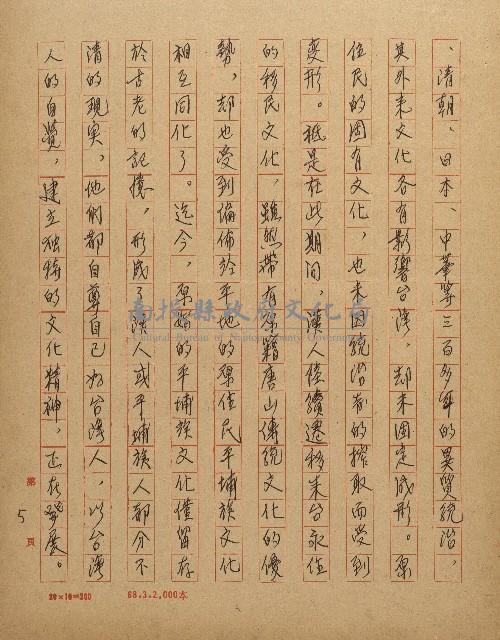 、清朝、日本、中華等三百多年的異質統治，
其外來文化各有影響台湾，却未固定成形。原
住民的固有文化，也未因統治者的搾取而受到
變形。祗是在此期间，漢人陸續遷移来台永住
的移民文化，雖然帶有原籍唐山傳統文化的優
勢，却也受到遍佈於平地的原住民平埔族文化
相互同化了。迄今，原始的平埔族文化僅留存
於古老的記憶，形成了漢人或平埔族人都分不
清的現実，他们都自尊自己為台湾人，以台湾
人的自覺，建立独特的文化精神，正在發展。
第5頁
20×10=200
68.3.2,000本
南投縣政府文化局
Cultural Bureau of Nantou County Government